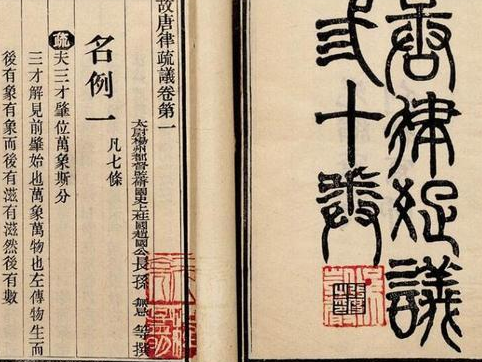 唐律疏議
弎十卷
故唐律疏議卷第一
太尉楊州都督監修國史上柱國趙國公長孫無忌等撰
名例一 凡七條
疏夫三才肇位萬象斯分
三才解見前肇始也萬象萬物也左傳物生而
後有象有象而後有滋滋然後有數